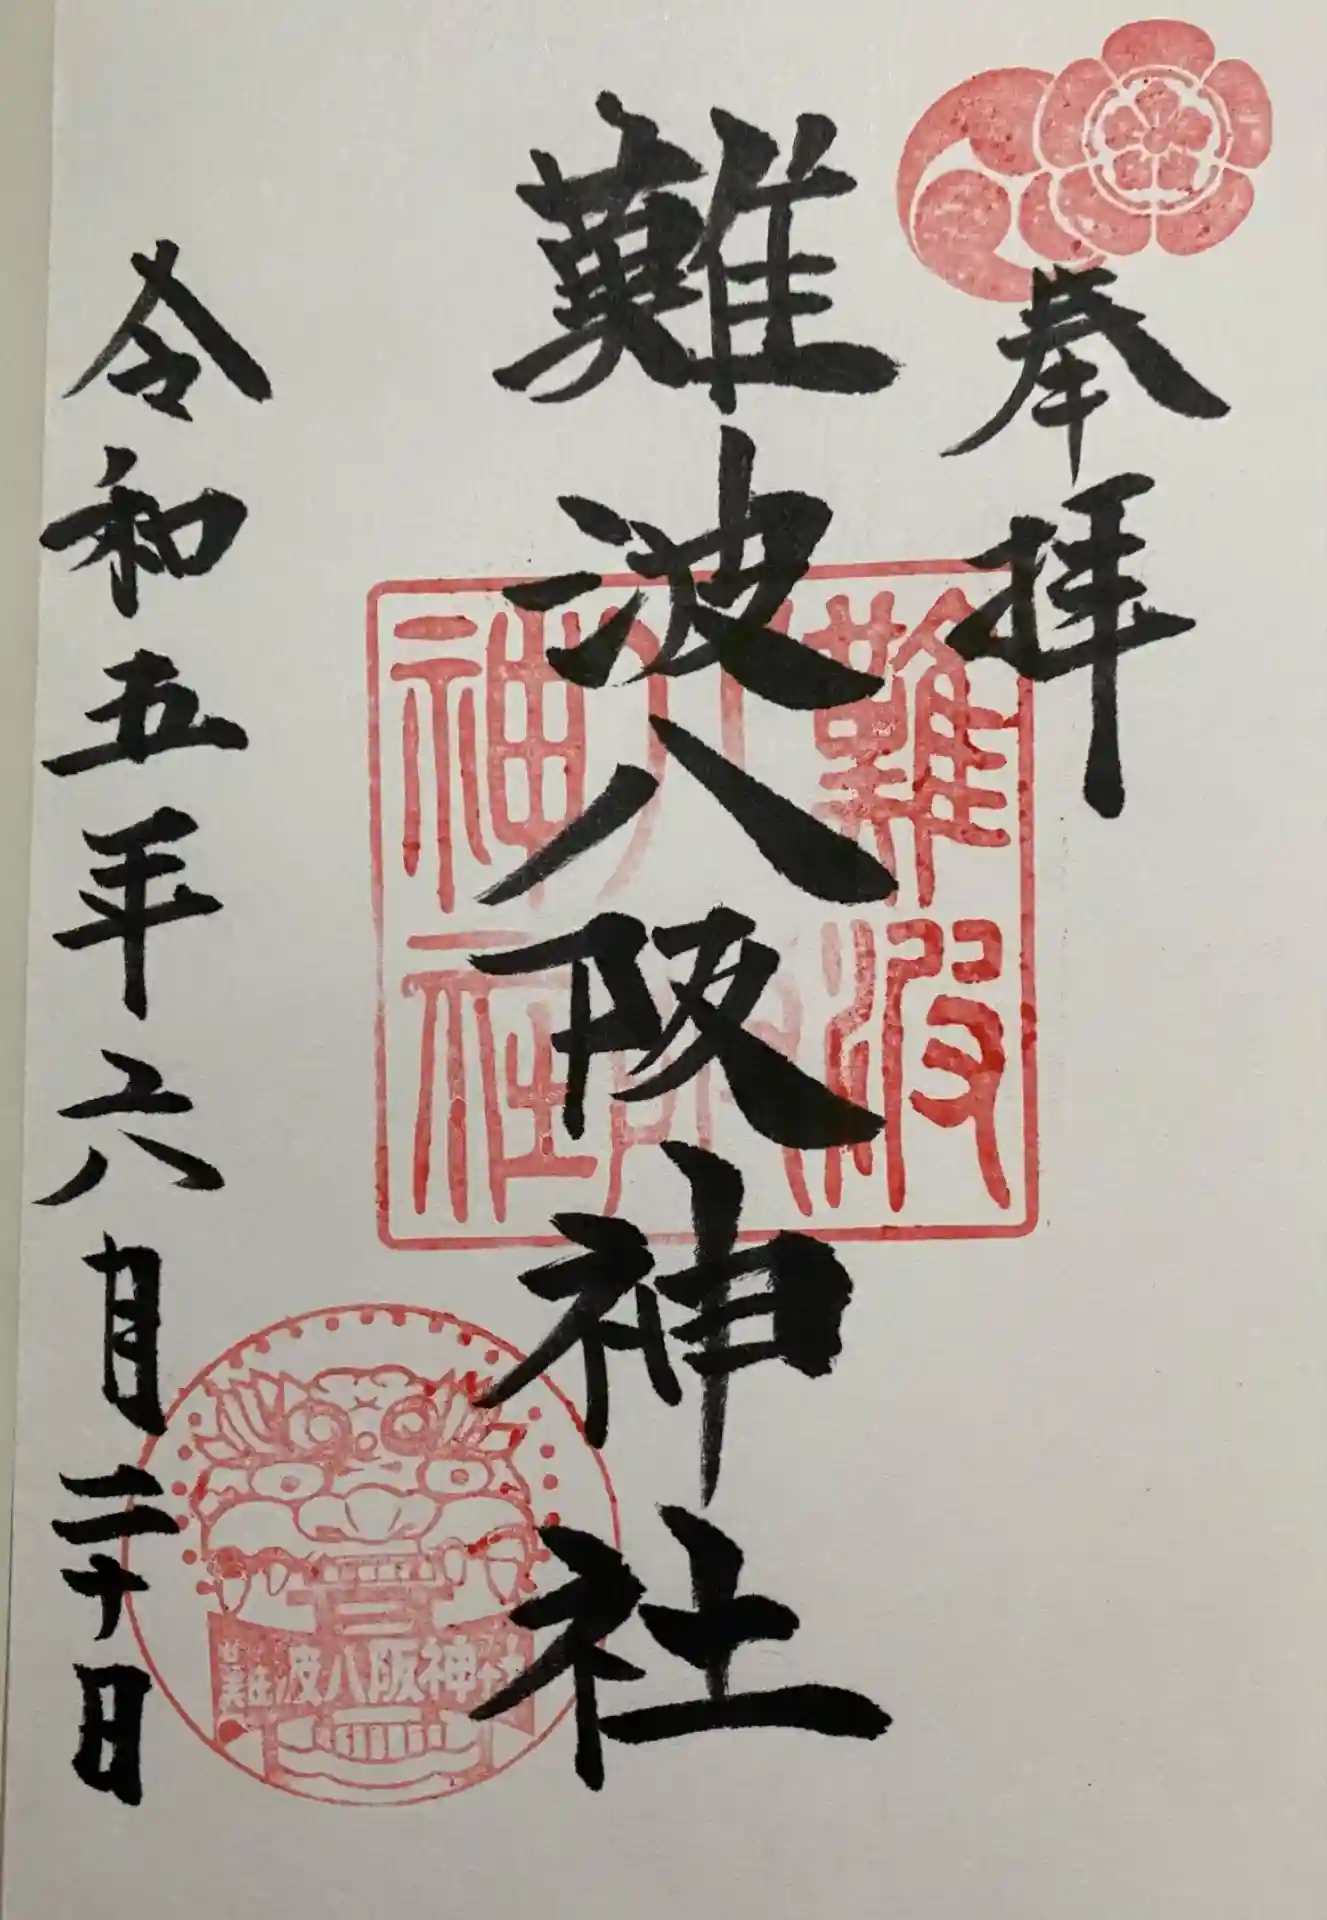 奉拝
難波八阪神社
令和五年六月二十日
難波
八阪
神社
難波八阪神社